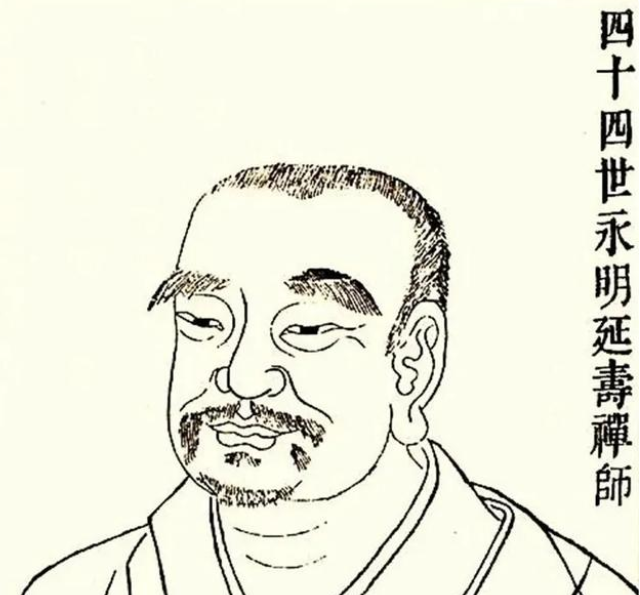 四十四世永明延壽禪師